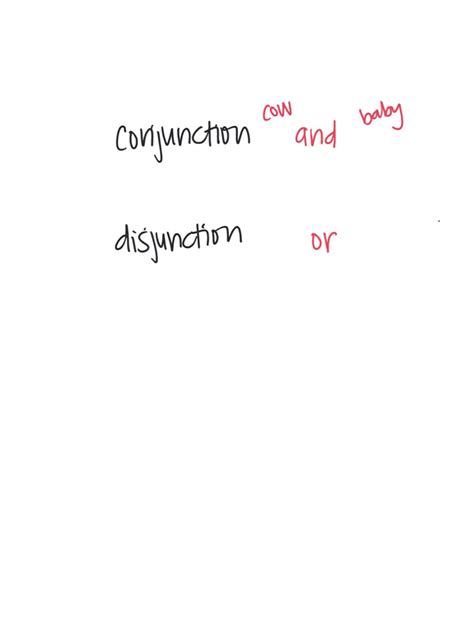 cow baby
conjunction and
disjunction or